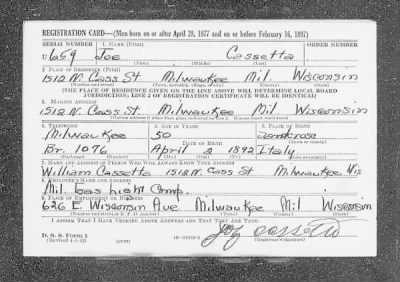 REGISTRATION CARD—(Men born on or after April 28, 1877 and on or before February 16, 1897)
SERIAL NUMBER 1. NAME (Print)
U 659 Joe Cassetta
2. PLACE OF RESIDENCE (Print)
1512 N. Cass St Milwaukee Mil. Wisconsin
[THE PLACE OF RESIDENCE GIVEN ON THE LINE ABOVE WILL DETERMINE LOCAL BOARD
JURISDICTION; LINE 2 OF REGISTRATION CERTIFICATE WILL BE IDENTICAL]
3. MAILING ADDRESS
1512 N. Cass St. Milwaukee Mil Wisconsin
4. TELEPHONE 5. AGE IN YEARS 6. PLACE OF BIRTH
Milwaukee 50
DATE OF BIRTH
Br. 1076 April 2 1892 Italy
7. NAME AND ADDRESS OF PERSON WHO WILL ALWAYS KNOW YOUR ADDRESS
William Cassetta 1512 N. Cass St Milwaukee, Wis
8. EMPLOYER'S NAME AND ADDRESS
Mil. Gas Light Comp.
9. PLACE OF EMPLOYMENT OR BUSINESS
626 E. Wisconsin Ave. Milwaukee Mil Wisconsin
I AFFIRM THAT I HAVE VERIFIED ABOVE ANSWERS AND THAT THEY ARE TRUE.
D. S. S. Form 1
(Revised 4-1-42) (over)
(Registrant's signature)